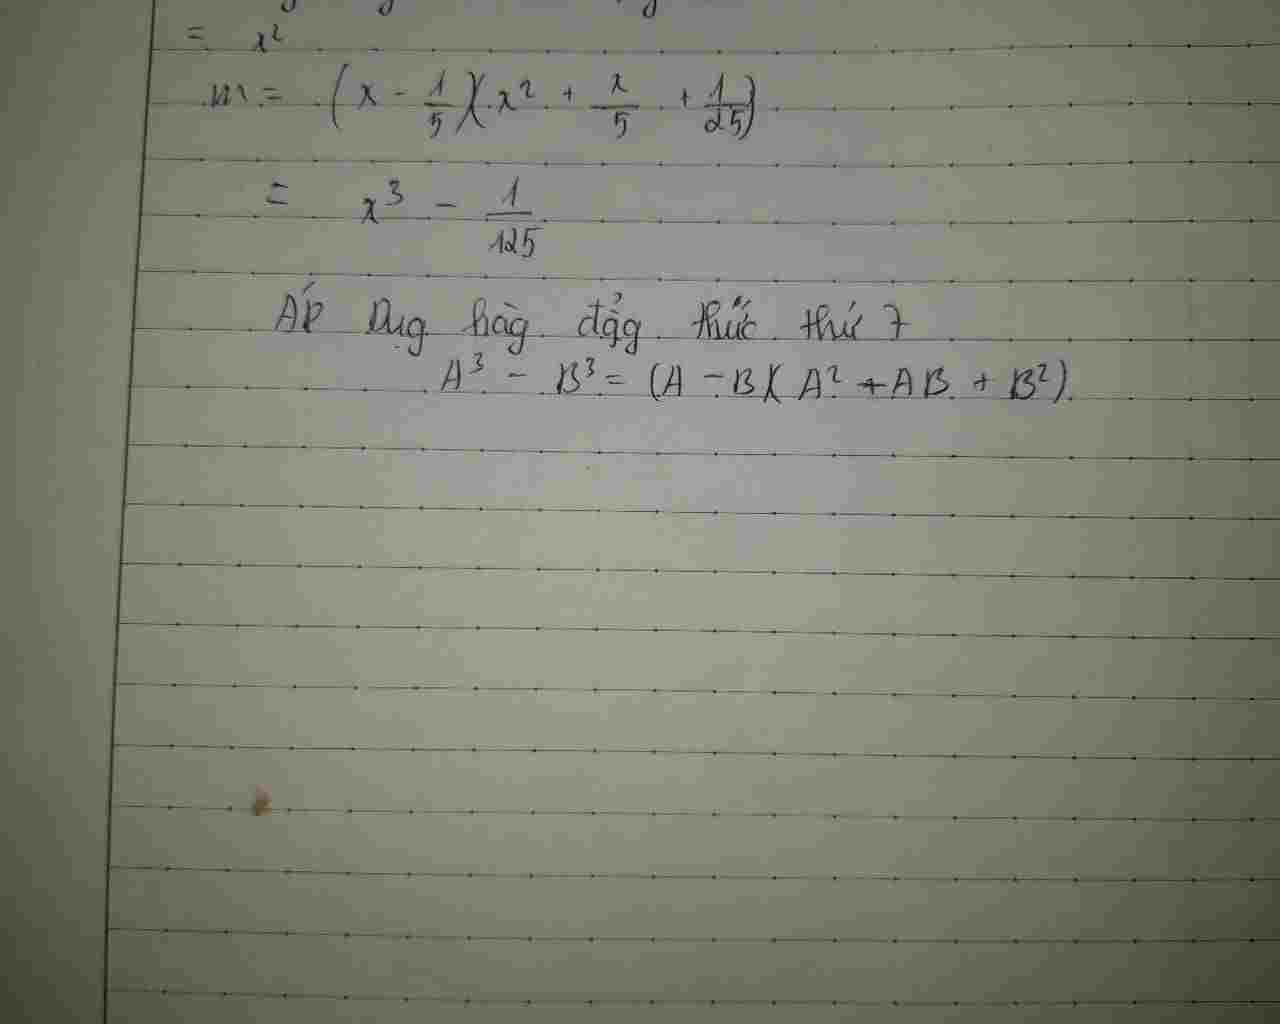 = x²
m = (x - 1/5)(x² + x/5 + 1/25)
= x³ - 1/125
Áp Dụg hàg đẳg thức thứ 7
A³ - B³ = (A - B)(A² + AB + B²)